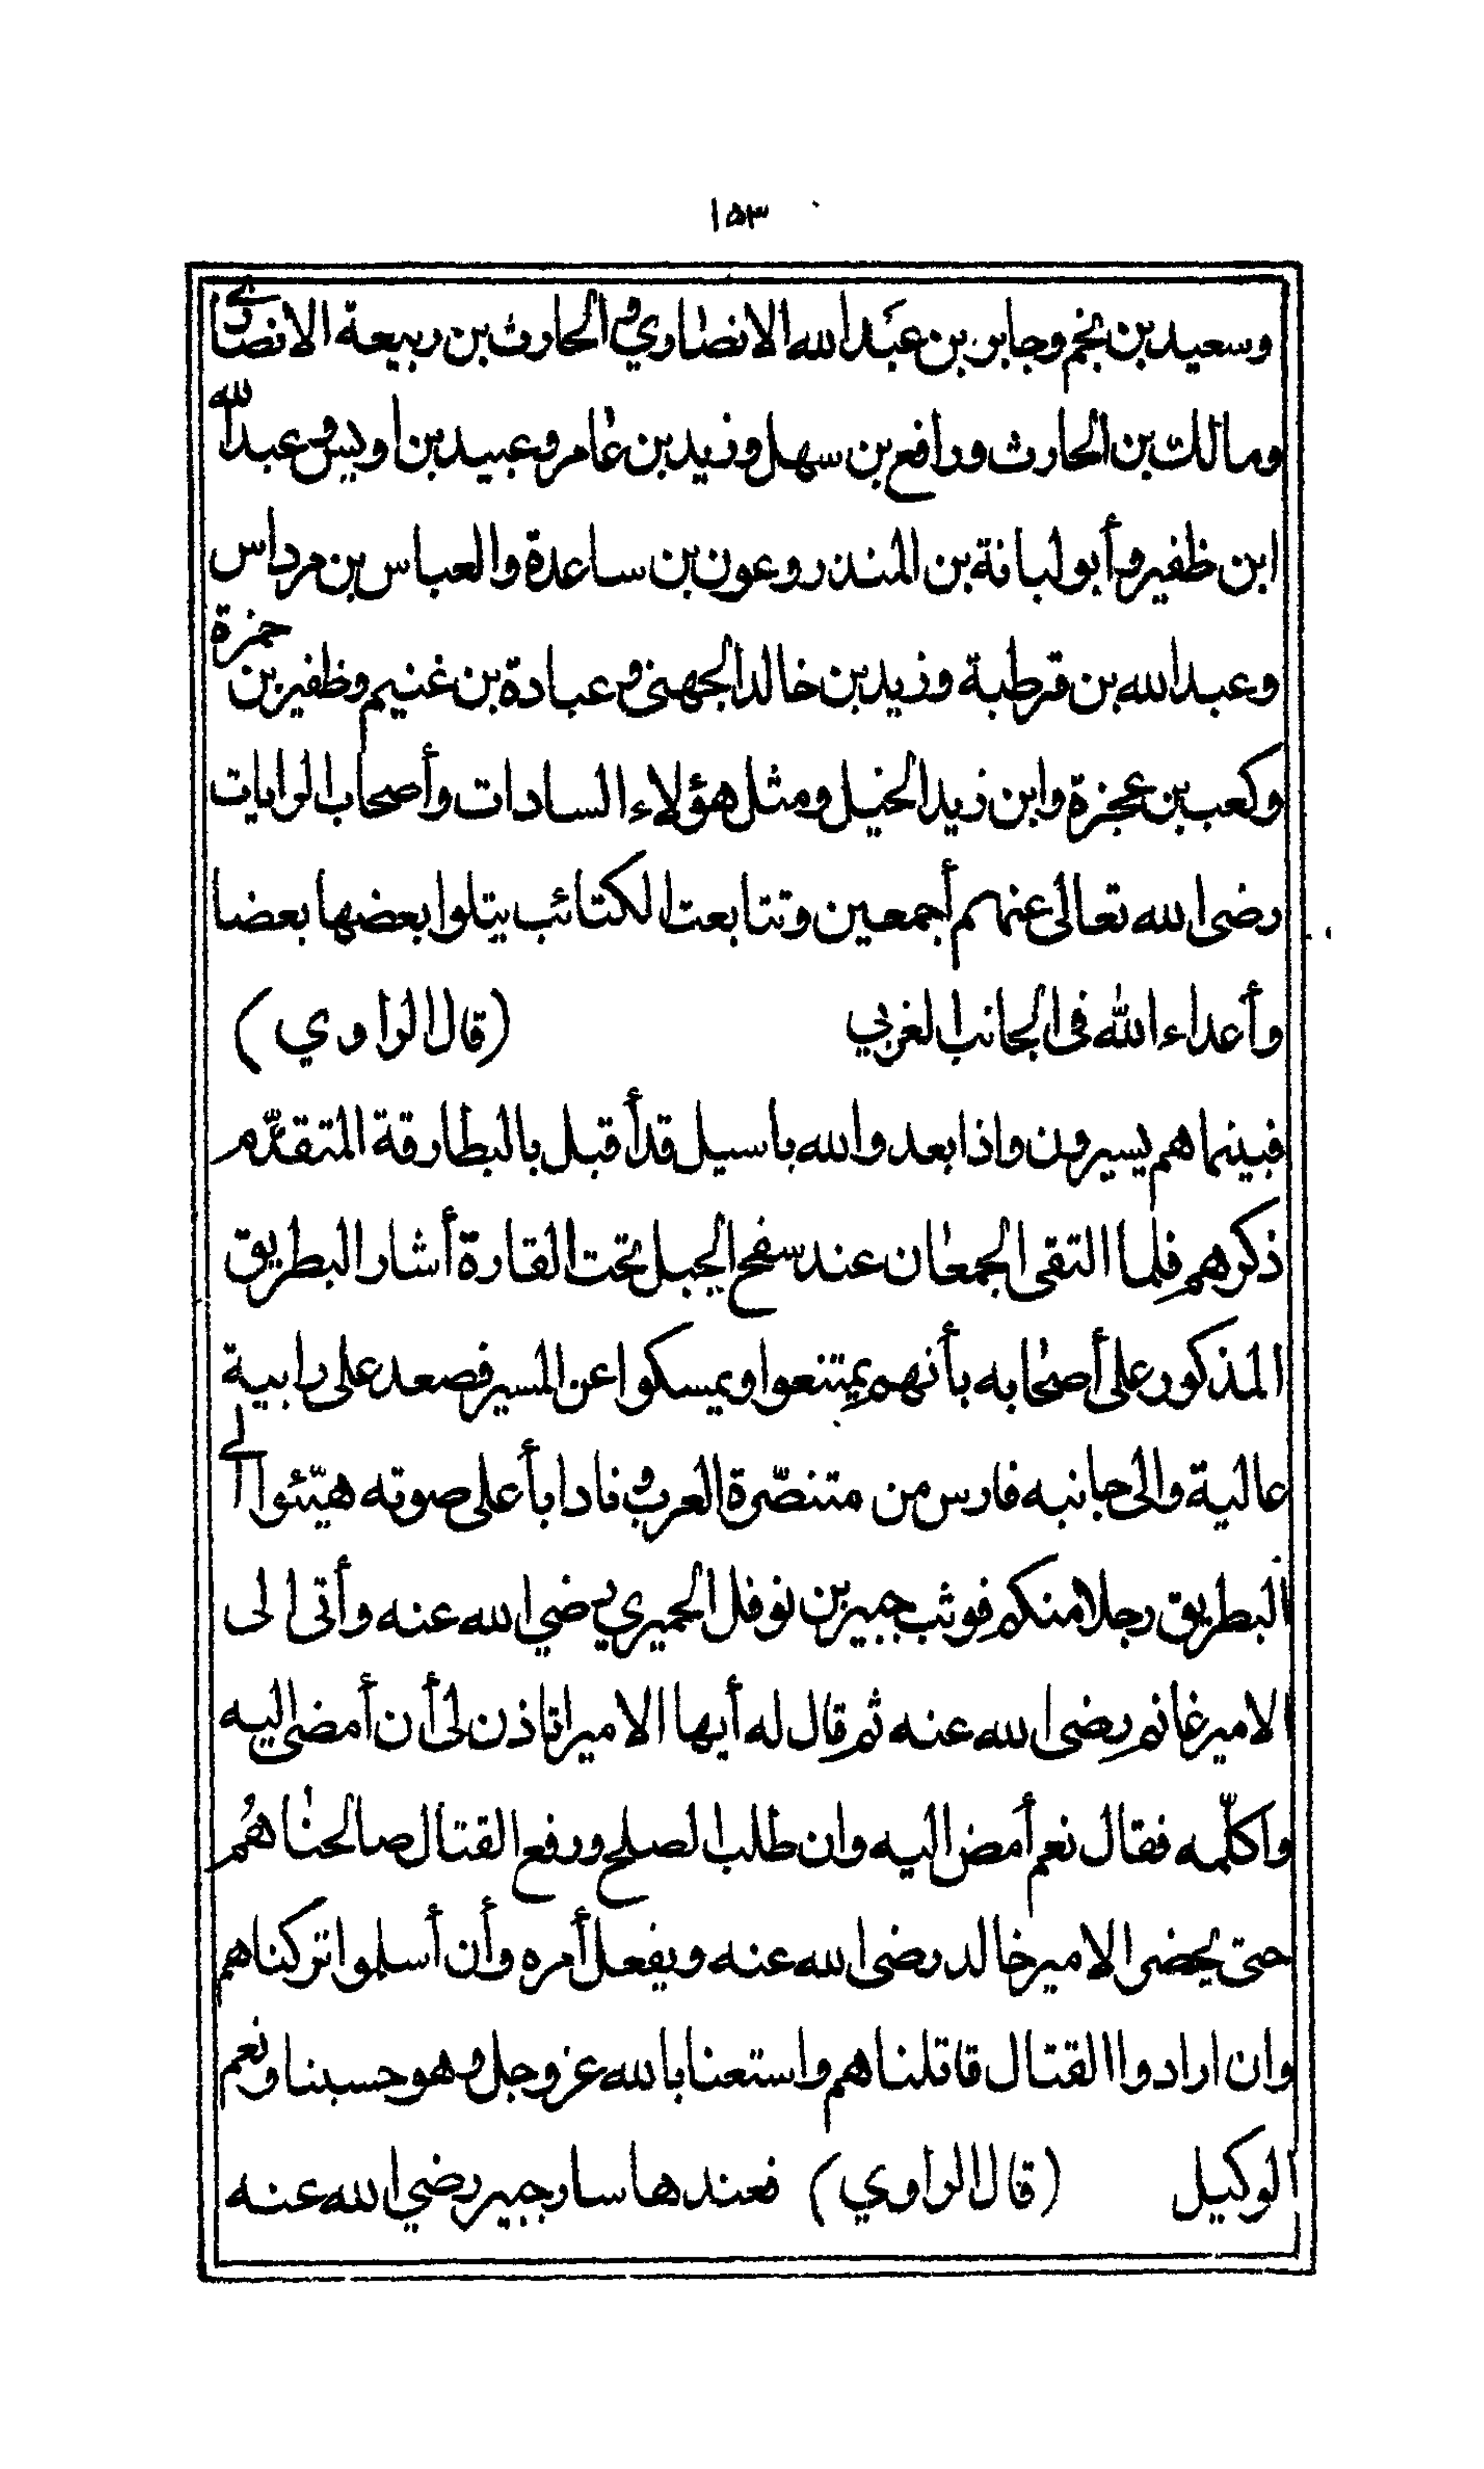 ١٥٣
وسعيد بن نجم وجابر بن عبد الله الانصاري والحارث بن ربيعة الانصاري
ومالك بن الحارث ورافع بن سهل وزيد بن عامر وعبيد بن اويس وعبد الله
ابن ظفير وأبو لبانة بن المنذر وعون بن ساعدة والعباس بن مرداس
وعبد الله بن قرطبة وزيد بن خالد الجهنى وعبادة بن غنيم وظفير بن حمزة
وكعب بن عجزة وابن زيد الخيل ومثل هؤلاء السادات وأصحاب الرايات
رضى الله تعالى عنهم أجمعين وتتابعت الكتائب يتلوا بعضها بعضا
وأعداء الله فى الجانب الغربي (قال الراوي)
فبينما هم يسيرون واذا بعدو الله باسيل قد أقبل بالبطارقة المتقدّم
ذكرهم فلما التقى الجمعان عند سفح الجبل تحت القارة أشار البطريق
المذكور على أصحابه بأنهم يمتنعوا ويمسكوا عن المسير فصعد على رابية
عالية والى جانبه فارس من متنصّرة العرب ونادا بأعلى صوته هيّئوا الى
البطريق رجلا منكم فوثب جبير بن نوفل الحميري رضي الله عنه وأتى الى
الامير غانم رضى الله عنه ثم قال له أيها الامير اتاذن لى أن أمضى اليه
واكلّمه فقال نعم أمض اليه وان طلب الصلح ورفع القتال صالحناهُم
حتى يحضر الامير خالد رضى الله عنه ويفعل أمره وأن أسلموا تركناهم
وان ارادوا القتال قاتلناهم واستعنا بالله عز وجل وهو حسبنا ونعم
الوكيل (قال الراوي) فعندها سار جبير رضي الله عنه